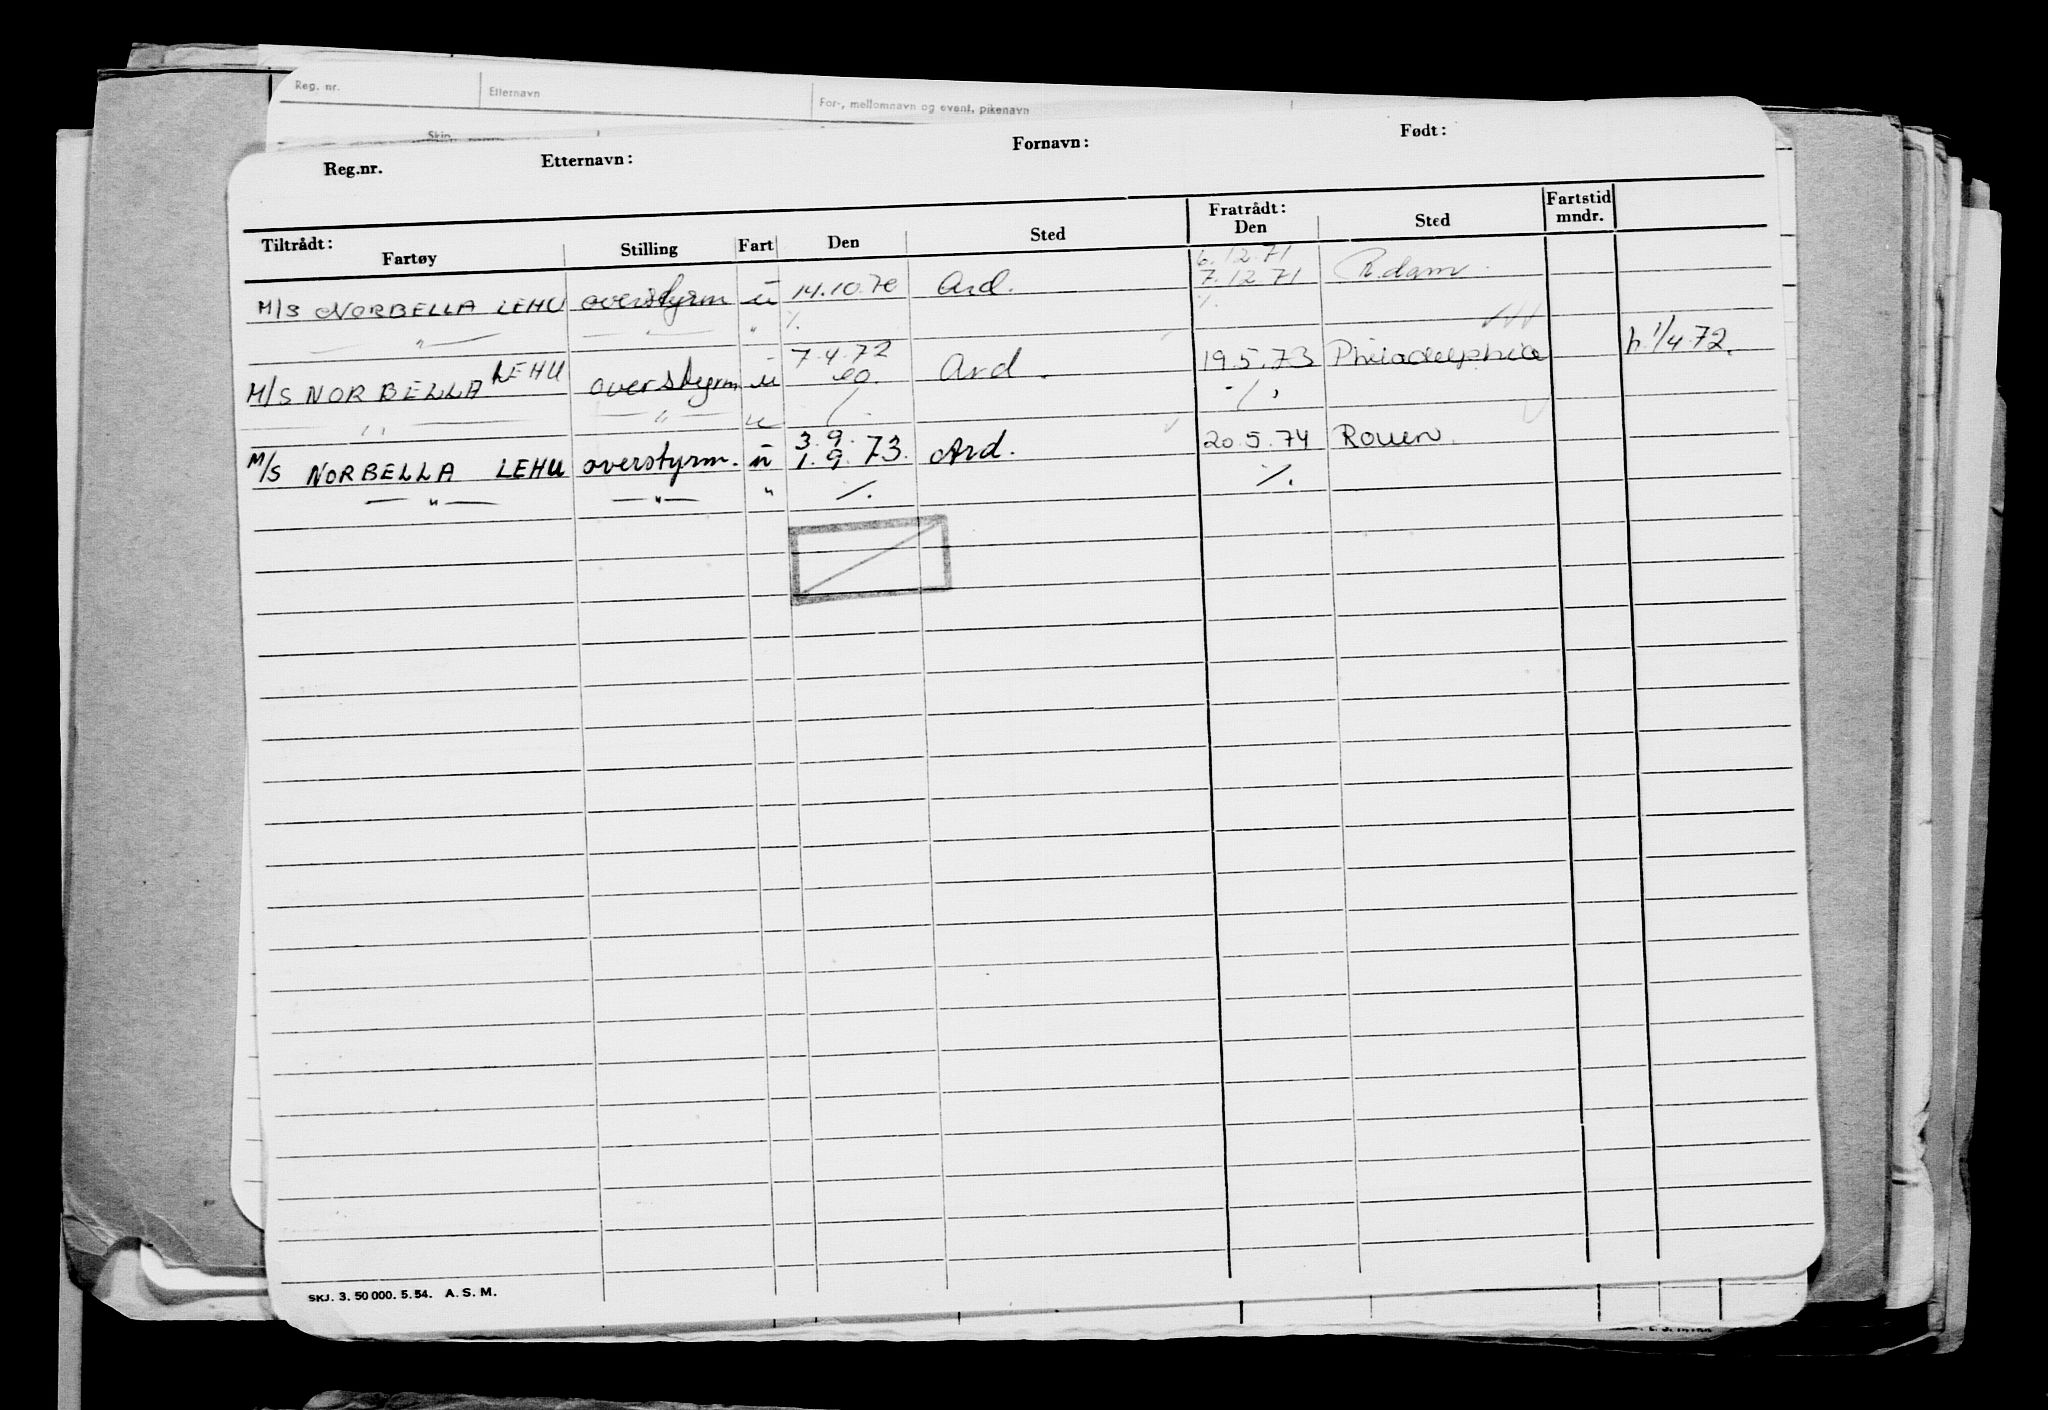 Reg. nr. Etternavn For-, mellomnavn og event. pikenavn
Skip
Reg.nr. Etternavn: Fornavn: Født:
Tiltrådt: Fratrådt: Fartstid
Fartøy Stilling Fart Den Sted Den Sted mndr.
6.12.71
M/S NORBELLA LEHU overstyrm u 14.10.70 Ard. 7.12.71 R.dam
— " — — " — " %. %.
7.4.72
M/S NORBELLA LEHU overstyrm u Ard. 19.5.73 Philadelphia h. 1/4.72.
— " — — " — u %.
3.9.
M/S NORBELLA LEHU overstyrm. u 1.9.73. Ard. 20.5.74 Rouen.
— " — — " — " %. %.
SKJ. 3. 50 000. 5. 54. A. S. M.